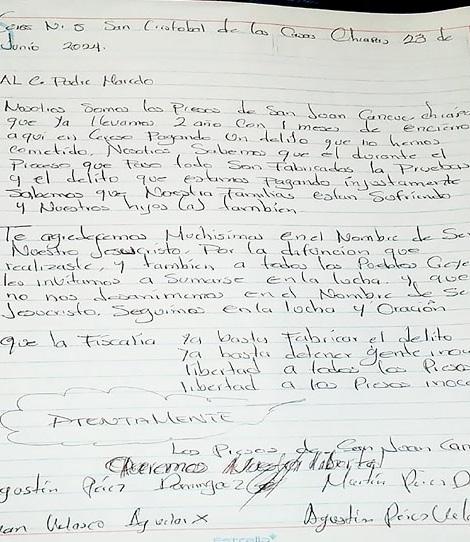 Cereso N. 5 San Cristobal de las Casas Chiapas 23 de
Junio 2024.
AL C. Padre Marcelo
Nosotros Somos los Presos de San Juan Cancuc chiapas
que ya llevamos 2 año con 1 meses de encierro
aqui en Cereso Pagando Un delito que no hemos
cometido. Nosotros Sabemos que el durante el
Proceso que tuvo todo Son Fabricados la Pruebas
y el delito que estamos Pagando injustamente
Sabemos que Nuestra Familias estan Sufriendo
y Nuestros hijos (a) tambien
Te agredecemos Muchisimas en el Nombre de Se
Nuestro Jesucristo. Por la difuncion que
realizaste, y tambien a todos los Pueblos Cree
les invitamos a Sumarse en la lucha. y que
no nos desanimemos en el Nombre de Se
Jesucristo. Seguimos en la lucha y Oración
que la Fiscalia ya basta Fabricar el delito
ya basta detener gente inoc
libertad a todos los Presos
libertad a los Presos inoc
ATENTAMENTE
Los Presos de San Juan Can
Queremos Nuestra libertad
gostín Pérez Domínguez Martín Pérez D
uan Velasco Aguilar X Agustín Pérez Vela